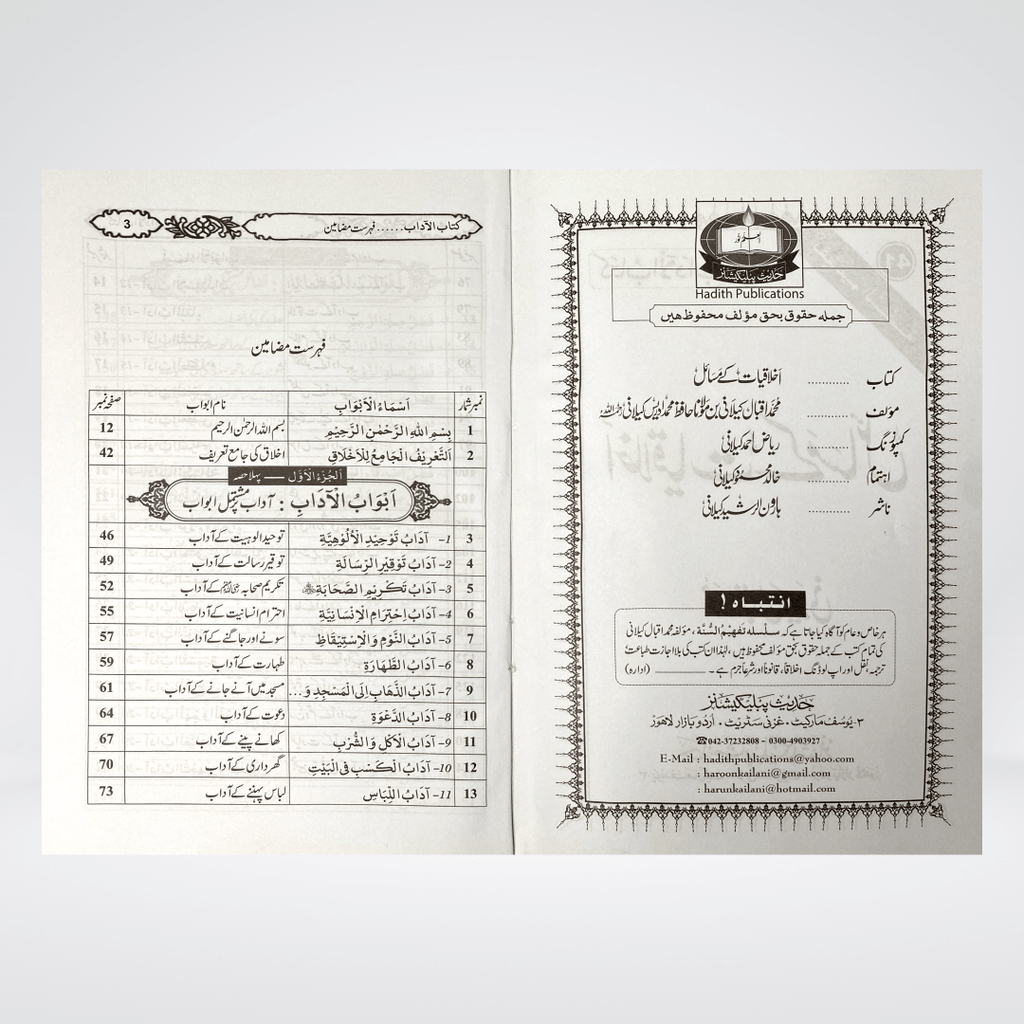 العلم نور
حدیث پبلیکیشنز
Hadith Publications
جمله حقوق بحق مؤلف محفوظ هیں
کتاب ............ اخلاقیات کے مسائل
مؤلف ............ محمد اقبال کیلانی بن مولانا حافظ محمد ادریس کیلانی رحمہ اللہ
کمپوزنگ ............ ریاض احمد کیلانی
اہتمام ............ خالد محمود کیلانی
ناشر ............ ہارون الرشید کیلانی
انتباہ !
ہر خاص و عام کو آگاہ کیا جاتا ہے کہ سلسله تفهیم السُّنَّة ، مؤلفہ محمد اقبال کیلانی
کی تمام کتب کے جملہ حقوق بحق مؤلف محفوظ ہیں ، لہٰذا ان کتب کی بلا اجازت طباعت
ترجمہ ، نقل اور اپ لوڈنگ اخلاقا، قانونا اور شرعاً جرم ہے ۔ (ادارہ)
حدیث پبلیکیشنز
۳- یوسف مارکیٹ ، غزنی سٹریٹ ، اردو بازار لاهور
☎042-37232808 – 0300-4903927
E-Mail : hadithpublications@yahoo.com
: haroonkailani@gmail.com
: harunkailani@hotmail.com
کتاب الآداب......فہرست مضامین 3
فہرست مضامین
نمبر شمار اَسْمَاءُ الْاَبْوَابِ نام ابواب صفحہ نمبر
1 بِسْمِ اللهِ الرَّحْمٰنِ الرَّحِيْمِ بسم اللہ الرحمٰن الرحیم 12
2 اَلتَّعْرِيْفُ الْجَامِعُ لِلْاَخْلَاقِ اخلاق کی جامع تعریف 42
اَلْجُزْءُ الْاَوَّل — پہلا حصہ
اَبْوَابُ الْآدَابِ : آداب پر مشتمل ابواب
3 1- آدَابُ تَوْحِيْدِ الْأُلُوْهِيَّةِ توحید الوہیت کے آداب 46
4 2- آدَابُ تَوْقِيْرِ الرِّسَالَةِ توقیر رسالت کے آداب 49
5 3- آدَابُ تَكْرِيْمِ الصَّحَابَةِ ؓ تکریم صحابہ ؓ کے آداب 52
6 4- آدَابُ اِحْتِرَامِ الْاِنْسَانِيَّةِ احترام انسانیت کے آداب 55
7 5- آدَابُ النَّوْمِ وَالْاِسْتِيْقَاظِ سونے اور جاگنے کے آداب 57
8 6- آدَابُ الطَّهَارَةِ طہارت کے آداب 59
9 7- آدَابُ الذَّهَابِ اِلَى الْمَسْجِدِ وَ... مسجد میں آنے جانے کے آداب 61
10 8- آدَابُ الدَّعْوَةِ دعوت کے آداب 64
11 9- آدَابُ الْاَكْلِ وَالشُّرْبِ کھانے پینے کے آداب 67
12 10- آدَابُ الْكَسْبِ فِى الْبَيْتِ گھرداری کے آداب 70
13 11- آدَابُ اللِّبَاسِ لباس پہننے کے آداب 73